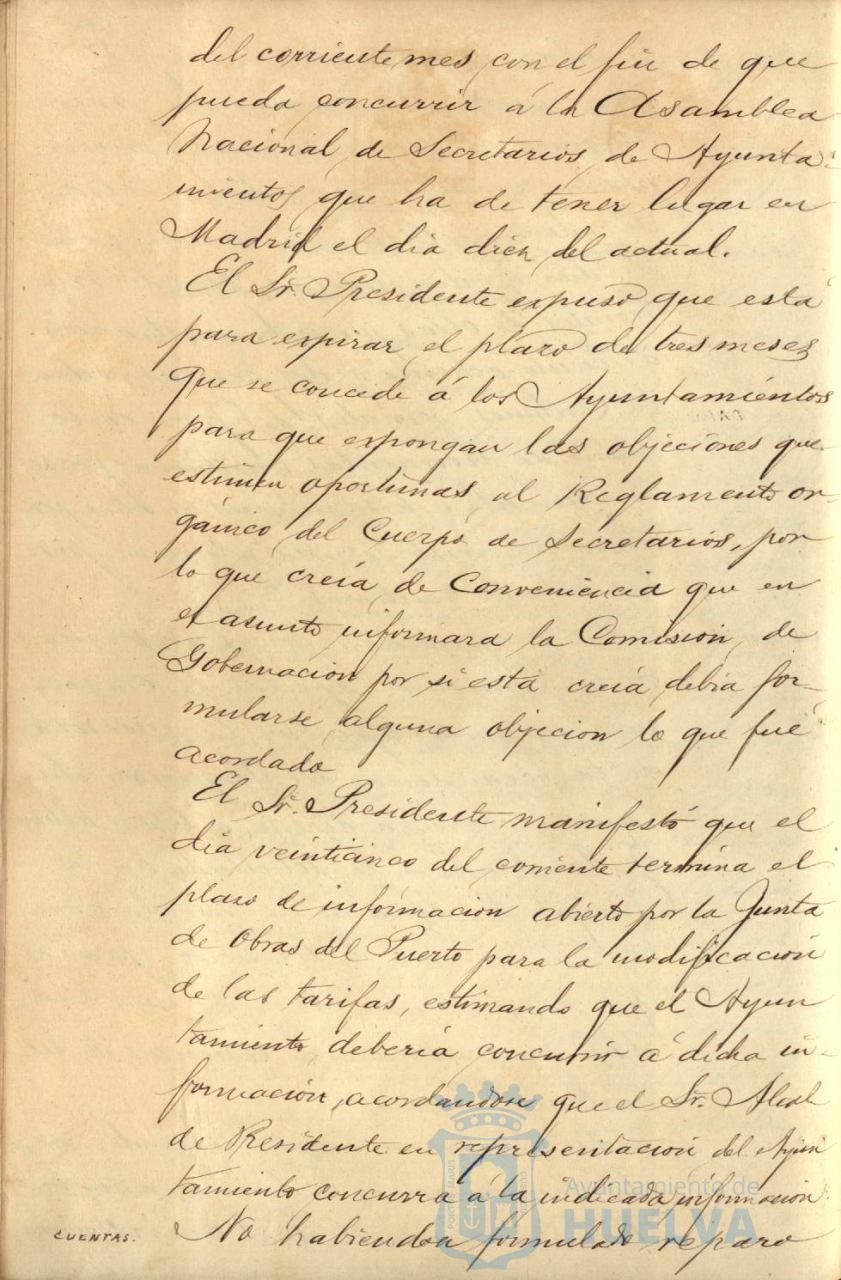 del corriente mes con el fin de que
pueda concurrir á la Asamblea
Nacional de Secretarios de Ayunta-
mientos que ha de tener lugar en
Madrid el dia diez del actual.
El Sr. Presidente expuso que está
para expirar el plazo de tres meses
que se concede á los Ayuntamientos
para que expongan las objeciones que
estimen oportunas al Reglamento or-
gánico del Cuerpo de Secretarios, por
lo que creía de conveniencia que en
el asunto informara la Comision de
Gobernacion por si esta creia debia for-
mularse alguna objecion lo que fué
acordado
El Sr. Presidente manifestó que el
dia veinticinco del corriente termina el
plazo de informacion abierto por la Junta
de Obras del Puerto para la modificación
de las tarifas, estimando que el Ayun
tamiento deberia concurrir á dicha in-
formación, acordandose que el Sr. Alcal
de Presidente en representación del Ayun
tamiento concurra á la indicada información
CUENTAS. No habiendose formulado reparo
Ayuntamiento de
HUELVA